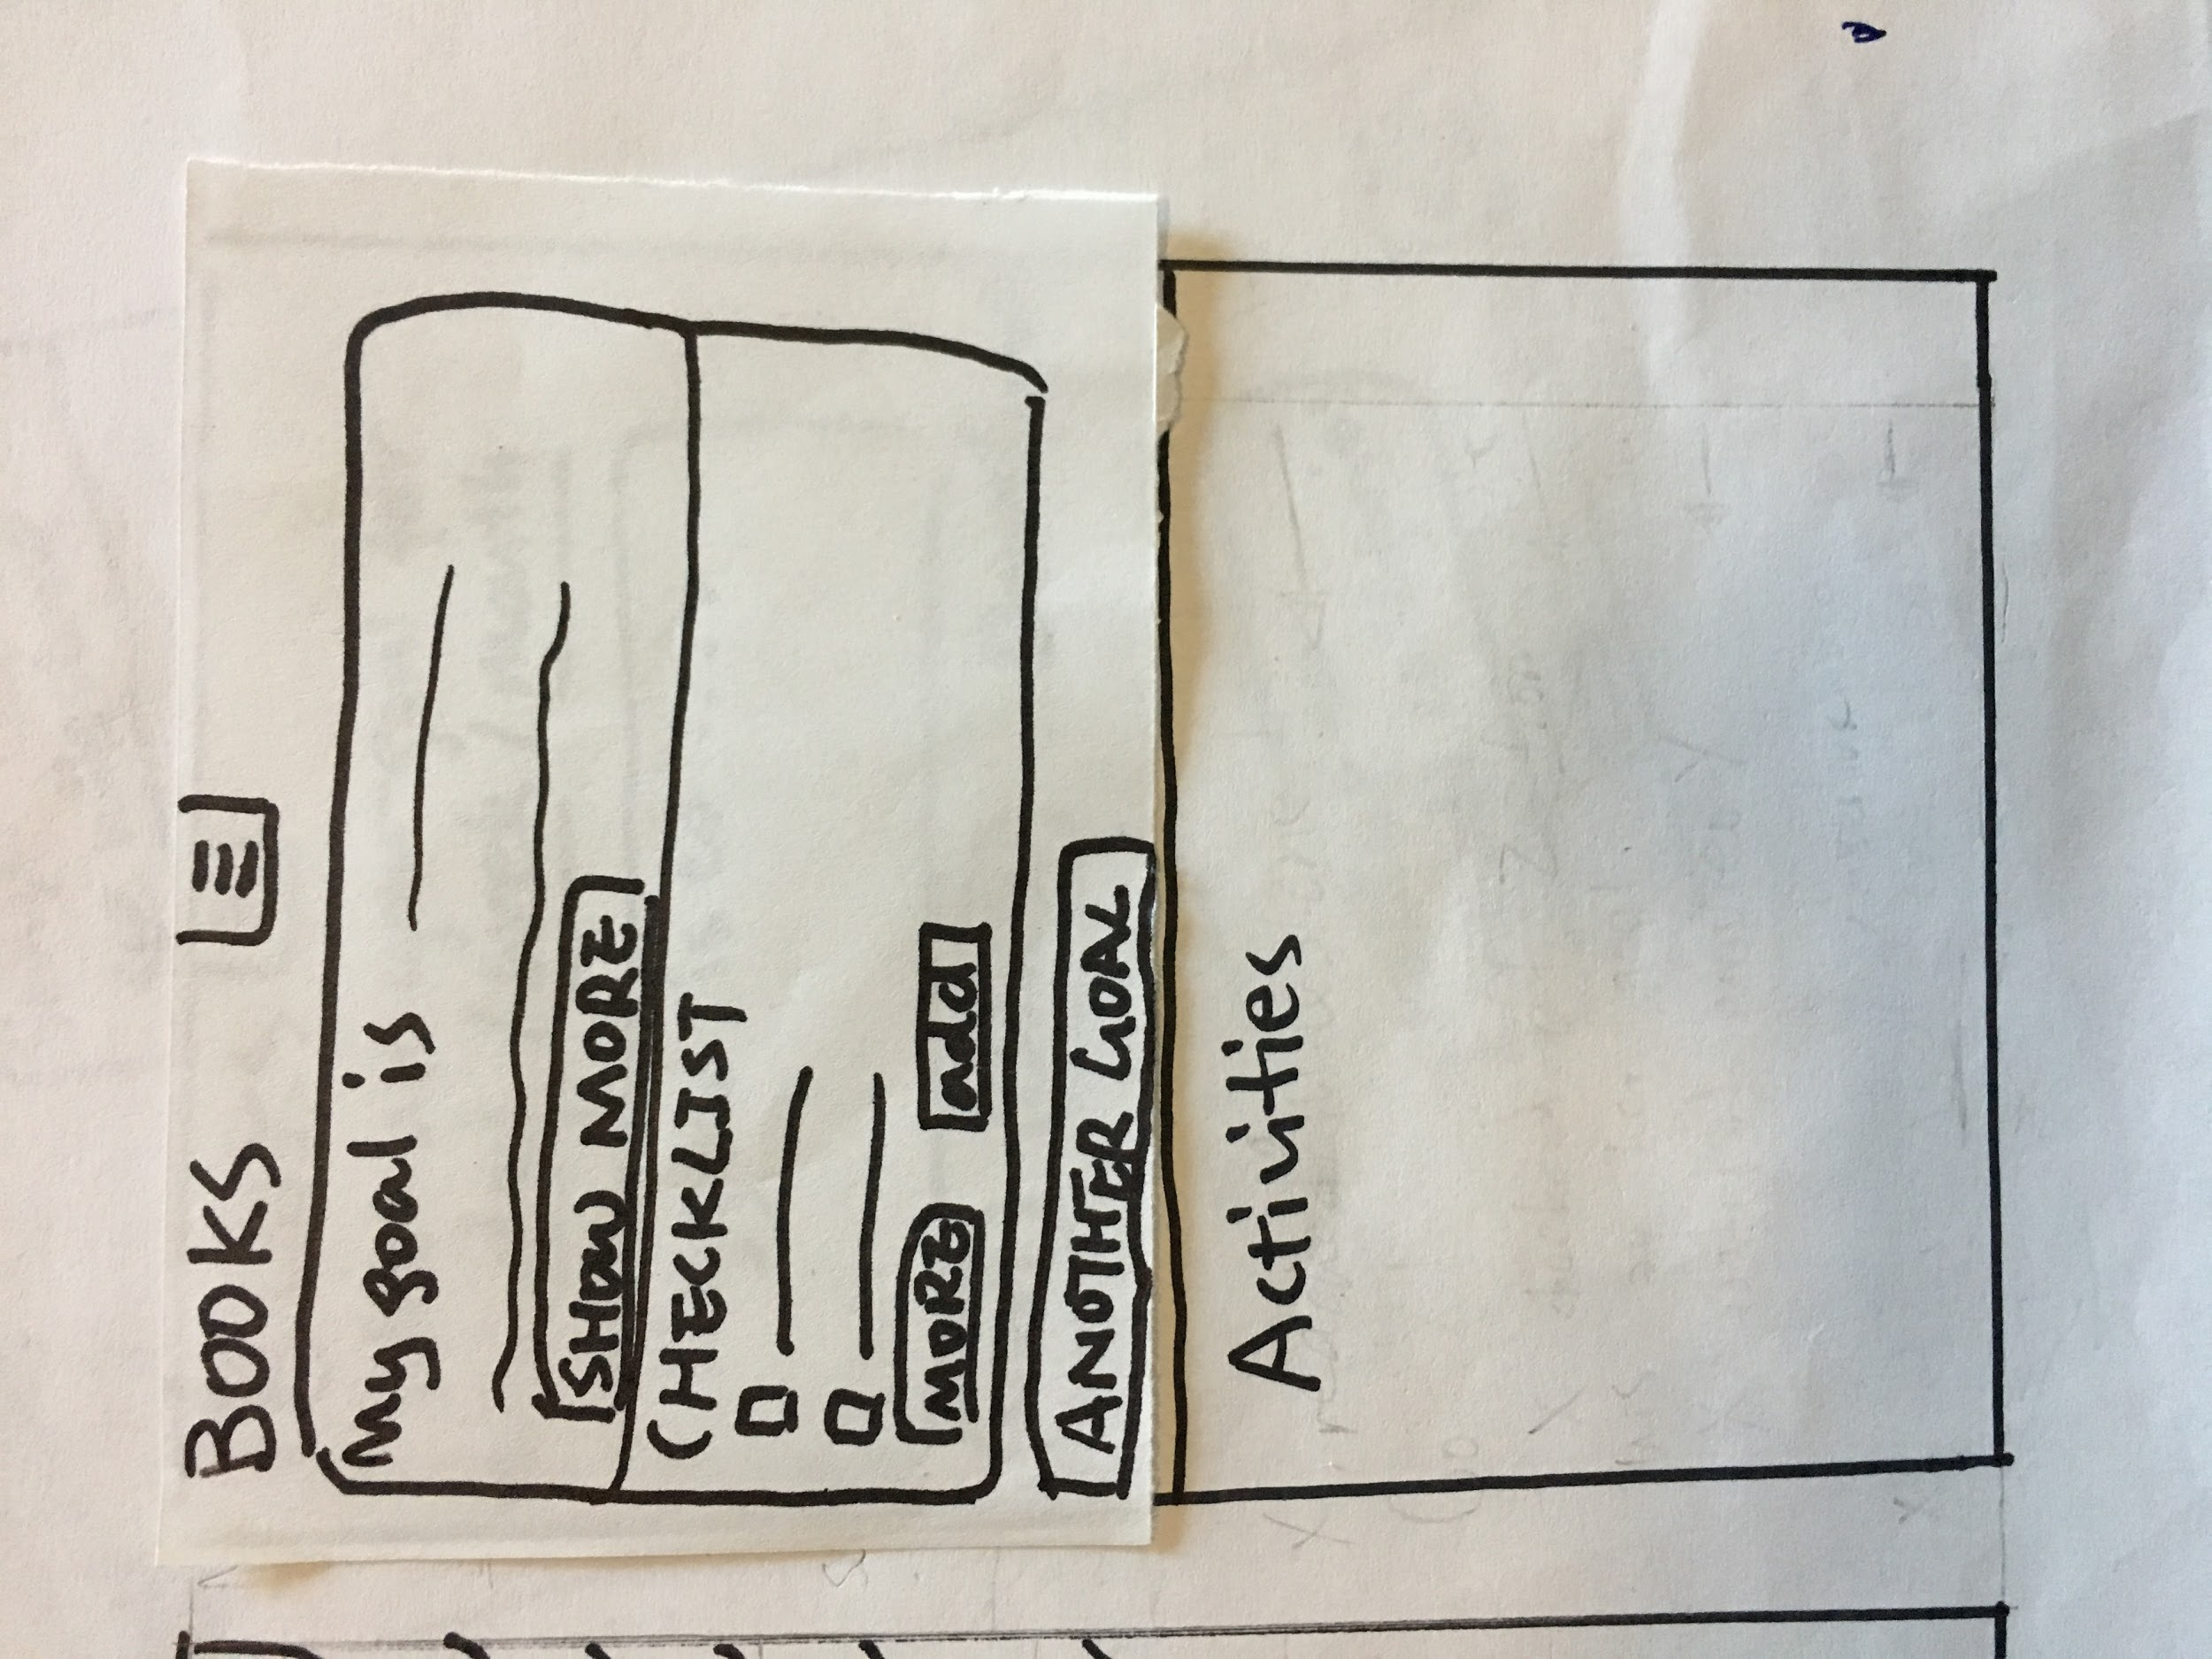 BOOKS
My goal is
SHOW MORE
CHECKLIST
MORE add
ANOTHER GOAL
Activities